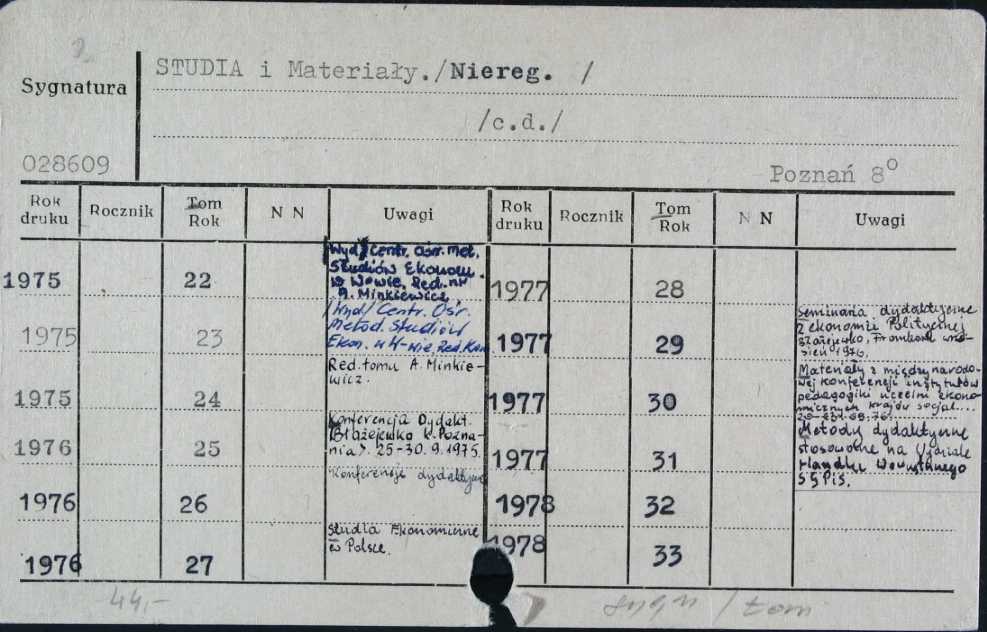 Sygnatura
STUDIA i Materiały./Niereg. /
/c.d./
028609
Poznań 8⁰
Rok druku Rocznik Tom Rok N N Uwagi Rok druku Rocznik Tom Rok N N Uwagi
1975 22
/Wyd/ Centr. Ośr. Met.
Studiów Ekonom.
w W-wie, Red.
A. Minkiewicz
1977 28
1975 23
/Wyd/ Centr. Ośr.
Metod. Studiów
Ekon. w W-wie, Red.
1977 29
Seminaria dydaktyczne
z ekonomii Politycznej
Błażejewko, wrze-
sień 1976.
1975 24
Red. tomu A. Minkie-
wicz.
1977 30
Materiały z międzynarodo-
wej konferencji instytutów
pedagogiki uczelni ekono-
micznych krajów socjal...
1976 25
Konferencja Dydakt.
Błażejewko k. Pozna-
nia). 25-30. 9. 1975.
1977 31
Metody dydaktyczne
stosowane na Wydziale
Handlu Wewnętrznego
SGPiS.
1976 26
Konferencje dydaktyczne
1978 32
1976 27
Studia Ekonomiczne
w Polsce.
1978 33
44,-
sygn / tom